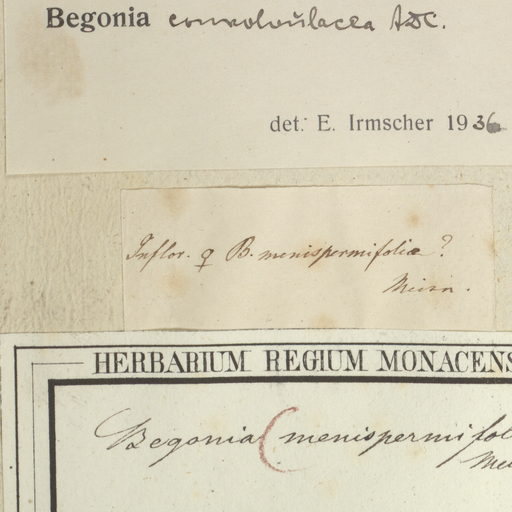 Begonia convolvulacea ADC.
det. E. Irmscher 1936
Inflor. ♀ B. menispermifoliæ?
Meisn.
HERBARIUM REGIUM MONACENS
Begonia (menispermifol
Mei